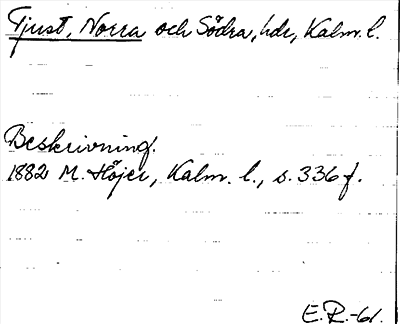 Tjust, Norra och Södra, hdr, Kalm. l.
Beskrivning.
1882 M. Höjer, Kalm. l., s. 336 f.
E.R.-61.